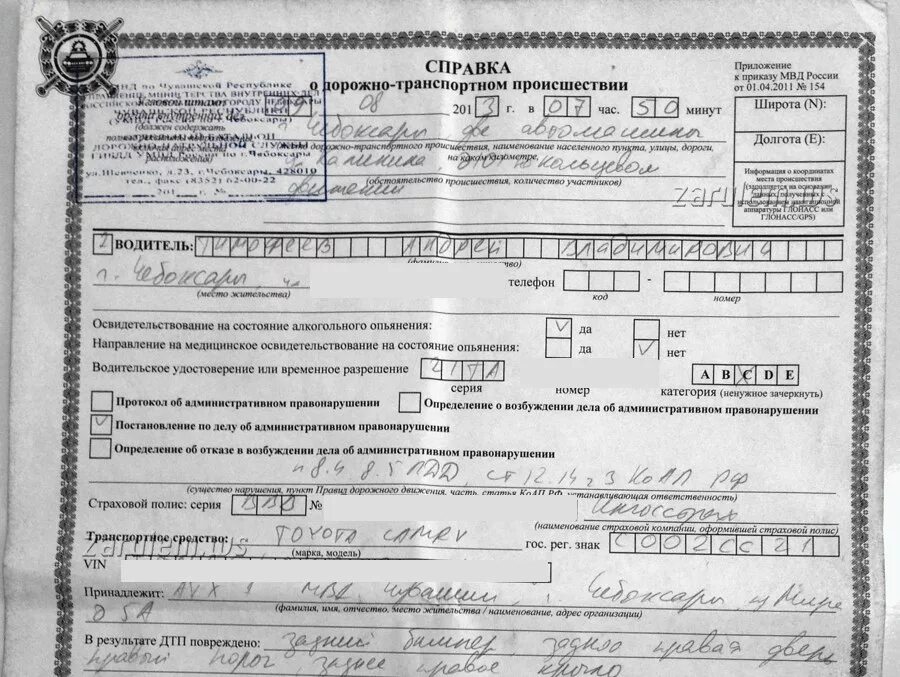 СПРАВКА
о дорожно-транспортном происшествии
Приложение
к приказу МВД России
от 01.04.2011 № 154
08 2013 г. в 07 час. 50 минут
Широта (N):
Долгота (E):
Информация о координатах
места происшествия
(заполняется на основании
данных, полученных с
использованием навигационной
аппаратуры ГЛОНАСС или
ГЛОНАСС/GPS)
МВД по Чувашской Республике
ДОРОЖНО-ПАТРУЛЬНОЙ СЛУЖБЫ
ул.Шевченко, д.23, г.Чебоксары, 428010
тел., факс (8352) 62-00-22
201 г. №
г. Чебоксары две автомашины
дорожно-транспортного происшествия, наименование населенного пункта, улицы, дороги,
на каком километре,
Калинина кольцевом
(обстоятельство происшествия, количество участников)
движении
zarulem.us
2 ВОДИТЕЛЬ: ТИМОФЕЕВ АНДРЕЙ ВЛАДИМИРОВИЧ
г. Чебоксары, ул
(место жительства)
телефон
код
номер
Освидетельствование на состояние алкогольного опьянения: да нет
Направление на медицинское освидетельствование на состояние опьянения: да нет
Водительское удостоверение или временное разрешение 21ТА
A B C D E
серия номер категория (ненужное зачеркнуть)
Протокол об административном правонарушении
Определение о возбуждении дела об административном правонарушении
Постановление по делу об административном правонарушении
Определение об отказе в возбуждении дела об административном правонарушении
п 8.4 8.5 ПДД, ст 12.14 ч 3 КоАП РФ
(существо нарушения, пункт Правил дорожного движения, часть, статья КоАП РФ, устанавливающая ответственность)
Страховой полис: серия ВВВ № Ингосстрах
(наименование страховой компании, оформившей страховой полис)
Транспортное средство: TOYOTA CAMRY гос. рег. знак С002СС21
(марка, модель)
zarulem.us
VIN
Принадлежит: АХУ МВД Чувашии г. Чебоксары пр Мира
(фамилия, имя, отчество, место жительства / наименование, адрес организации)
D 5А
В результате ДТП повреждено: задний бампер, задняя правая дверь
правый порог, заднее правое крыло